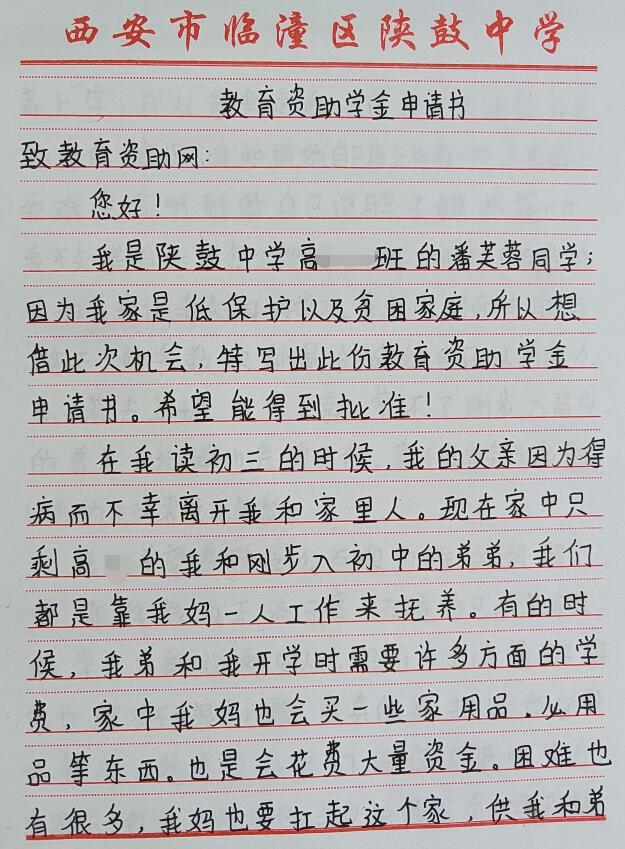 西安市临潼区陕鼓中学
教育资助学金申请书
致教育资助网:
您好!
我是陕鼓中学高 班的潘芙蓉同学;
因为我家是低保护以及贫困家庭,所以想
借此次机会,特写出此份教育资助学金
申请书。希望能得到批准!
在我读初三的时候,我的父亲因为得
病而不幸离开我和家里人。现在家中只
剩高 的我和刚步入初中的弟弟,我们
都是靠我妈一人工作来抚养。有的时
候,我弟和我开学时需要许多方面的学
费,家中我妈也会买一些家用品、必用
品等东西。也是会花费大量资金。困难也
有很多,我妈也要扛起这个家,供我和弟